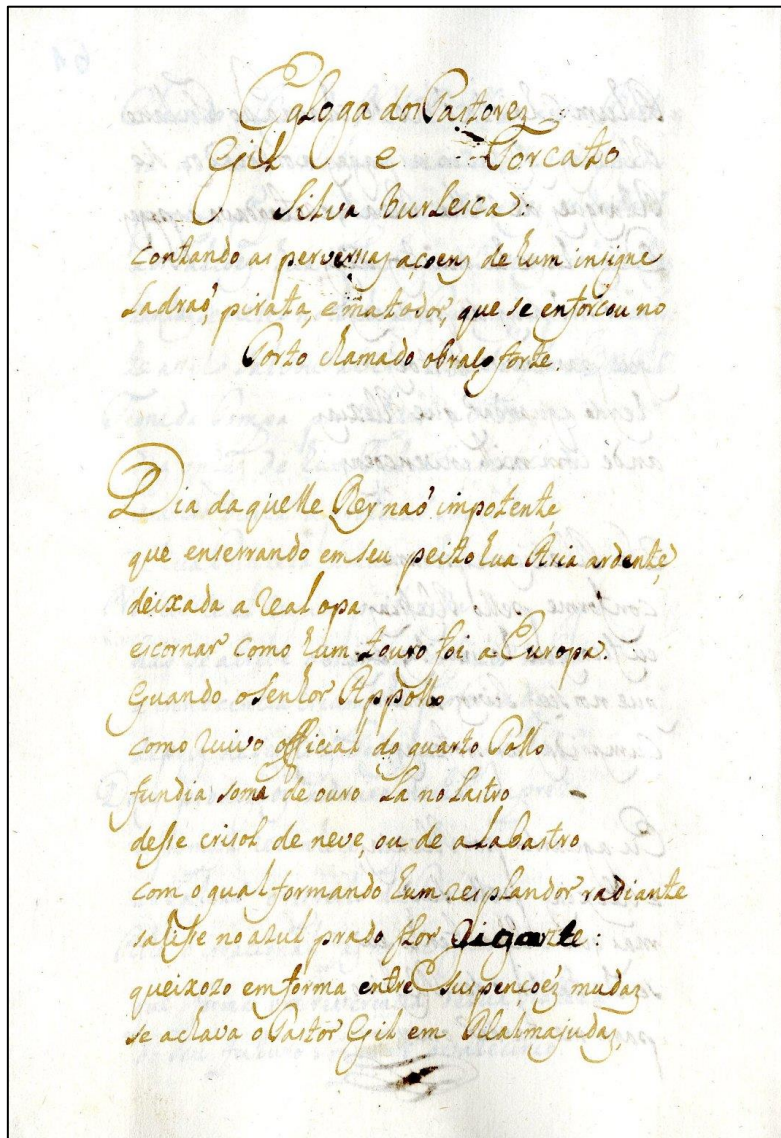 Egloga dos Pastorez
Gil e Torcato
Silva burlesca:
contando as perversas açoens de hum insigne
Ladraó, pirata, e matador, que se enforcou no
Porto chamado obraço forte.
Dia da quelle Rey naó impotente,
que enserrando em seu peito hua Aria ardente,
deixada a real opa
escornar como hum touro foi a Europa.
Quando o Senhor Appollo
como ruivo official do quarto Pollo
fundia soma de ouro La no Lastro
desse crisol de neve, ou de alabastro
com o qual formando hum resplandor radiante
sahisse no azul prado flor Gigante:
queixozo em forma entre suspençoéz mudaz
se achava o Pastor Gil em